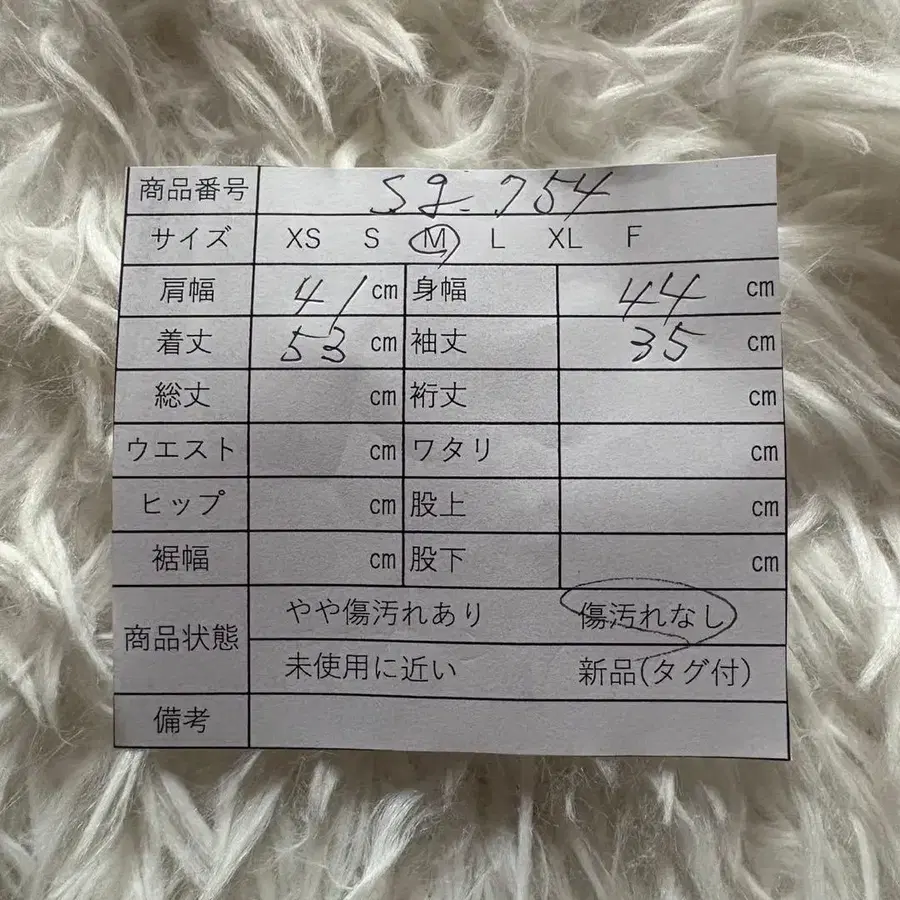 商品番号 sg-754
サイズ XS S M L XL F
肩幅 41 cm 身幅 44 cm
着丈 53 cm 袖丈 35 cm
総丈 cm 裄丈 cm
ウエスト cm ワタリ cm
ヒップ cm 股上 cm
裾幅 cm 股下 cm
商品状態 やや傷汚れあり 傷汚れなし
未使用に近い 新品(タグ付)
備考